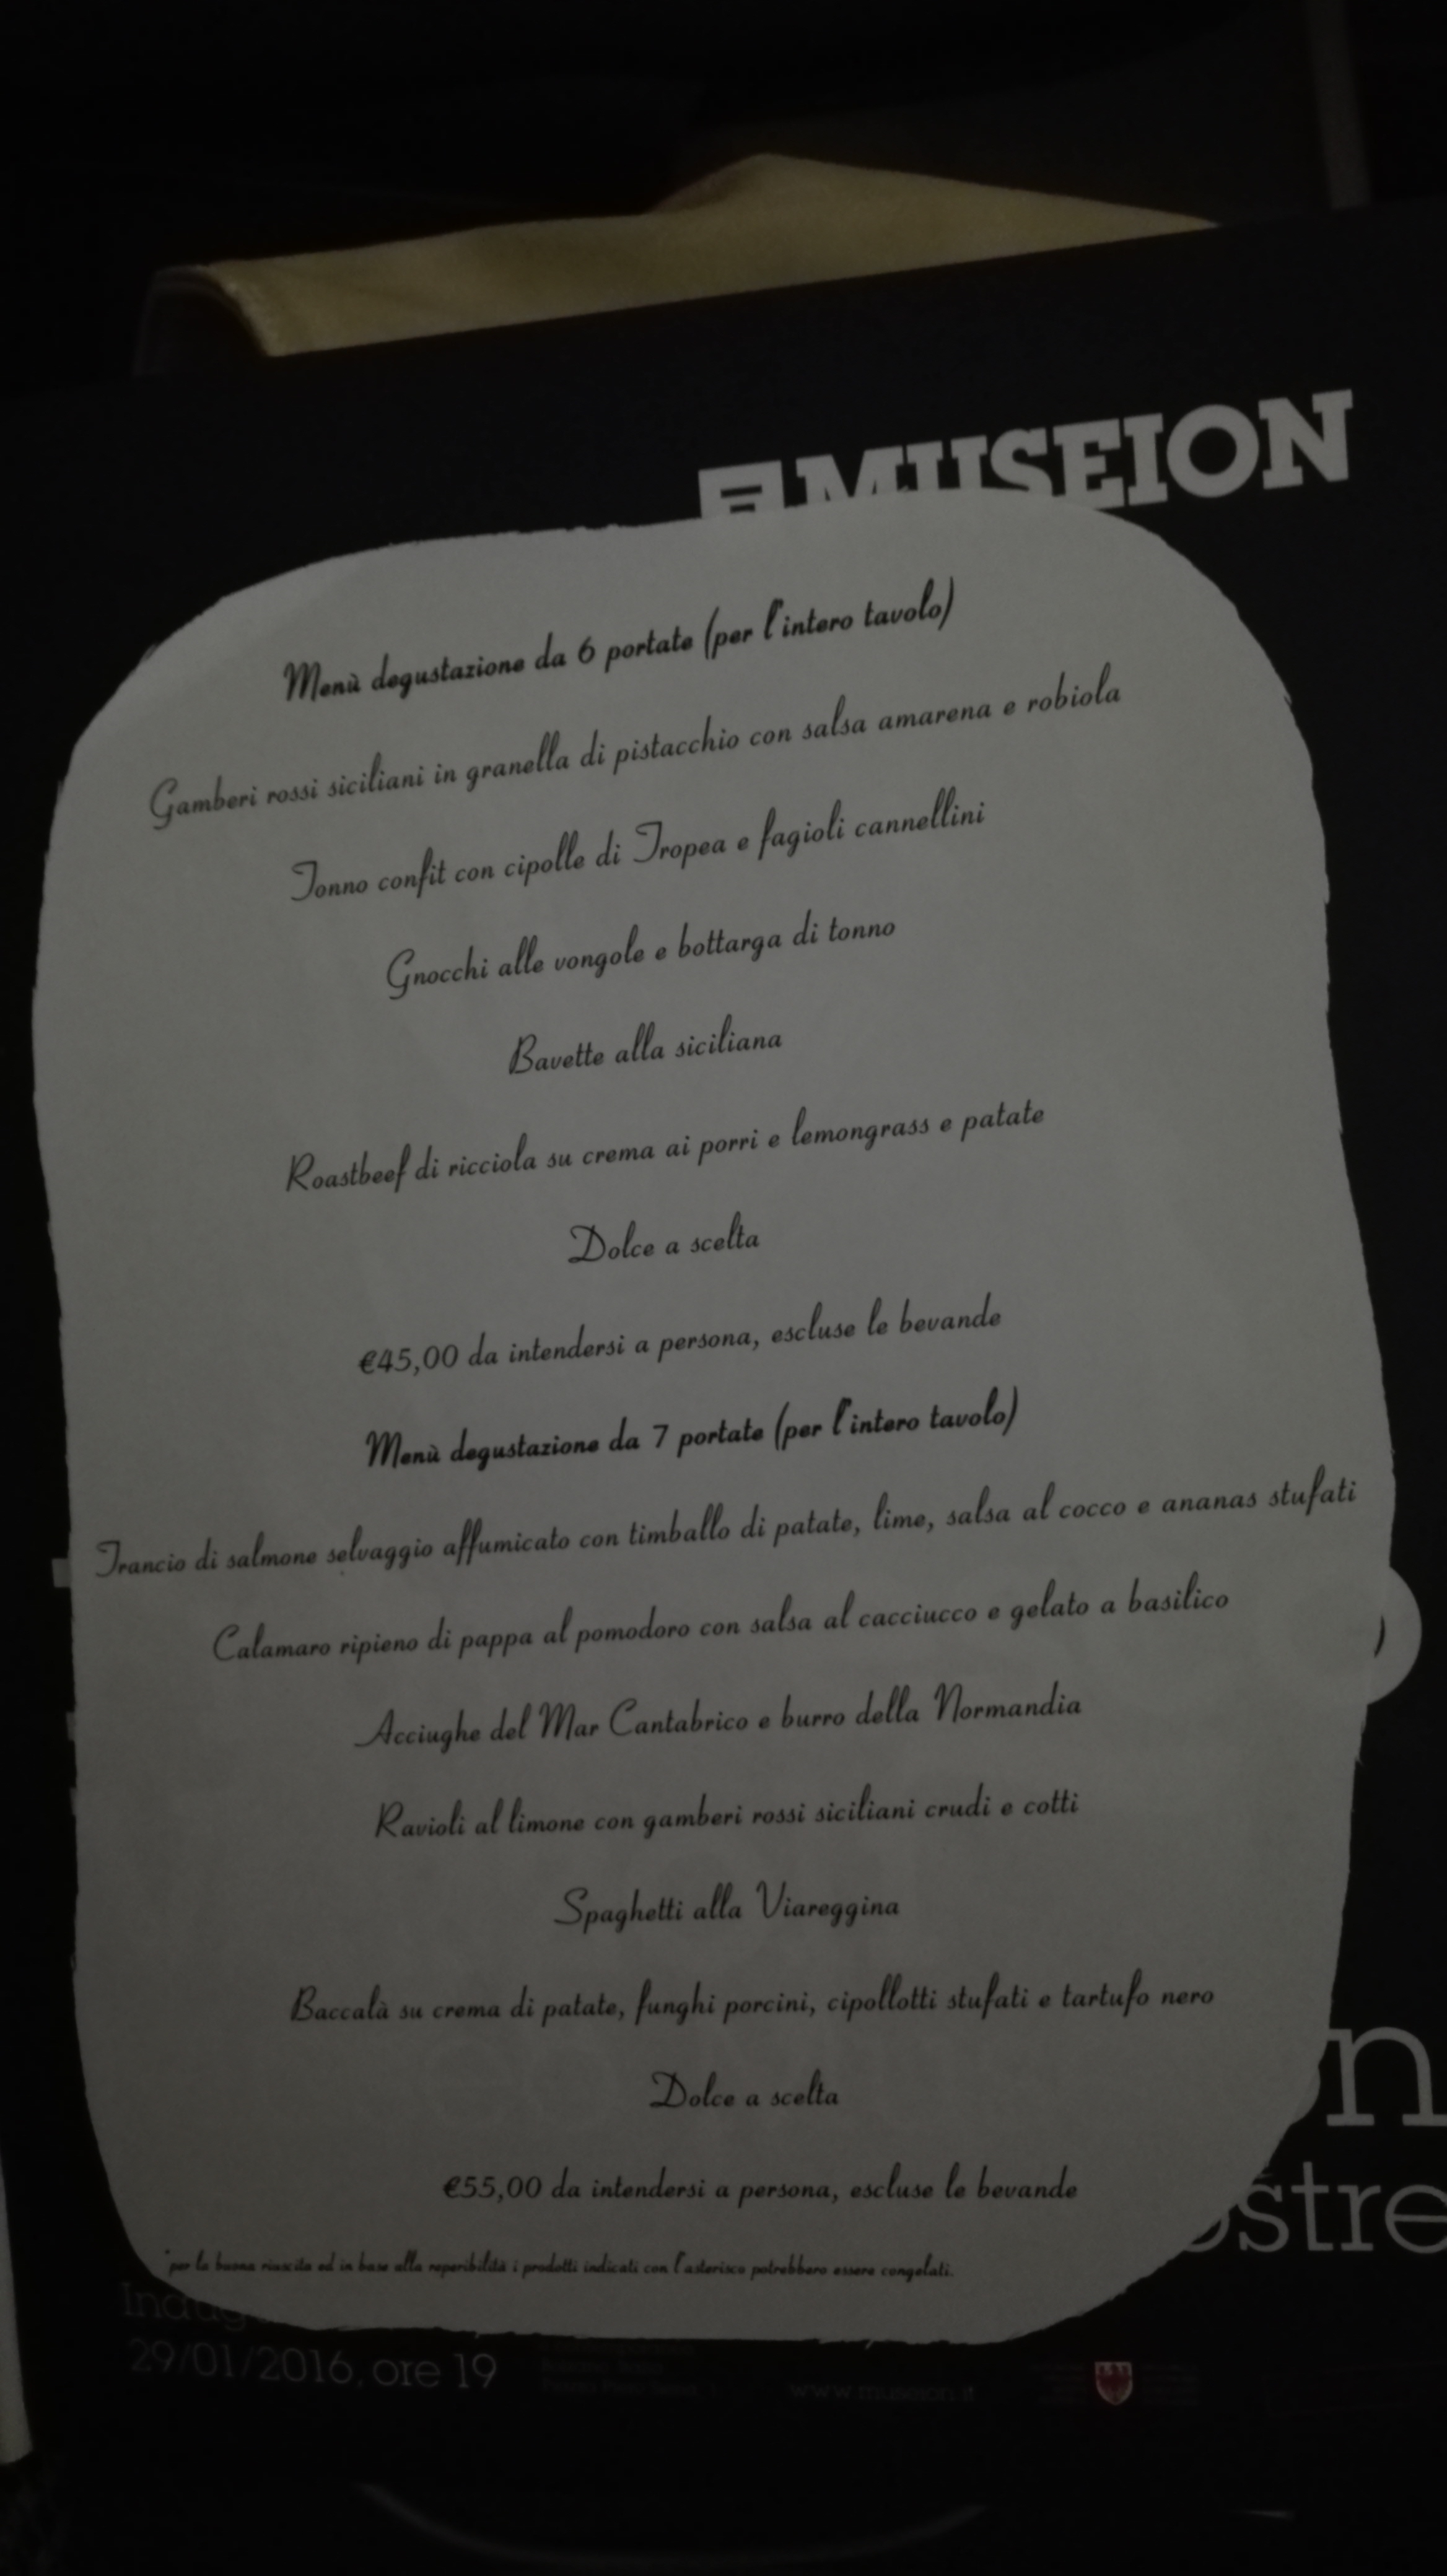 MUSEION
Menù degustazione da 6 portate (per l'intero tavolo)
Gamberi rossi siciliani in granella di pistacchio con salsa amarena e robiola
Tonno confit con cipolle di Tropea e fagioli cannellini
Gnocchi alle vongole e bottarga di tonno
Bavette alla siciliana
Roastbeef di ricciola su crema ai porri e lemongrass e patate
Dolce a scelta
€45,00 da intendersi a persona, escluse le bevande
Menù degustazione da 7 portate (per l'intero tavolo)
Trancio di salmone selvaggio affumicato con timballo di patate, lime, salsa al cocco e ananas stufati
Calamaro ripieno di pappa al pomodoro con salsa al cacciucco e gelato a basilico
Acciughe del Mar Cantabrico e burro della Normandia
Ravioli al limone con gamberi rossi siciliani crudi e cotti
Spaghetti alla Viareggina
Baccalà su crema di patate, funghi porcini, cipollotti stufati e tartufo nero
Dolce a scelta
€55,00 da intendersi a persona, escluse le bevande
*per la buona riuscita ed in base alla reperibilità i prodotti indicati con l'asterisco potrebbero essere congelati.
on
ostre
Inaug
29/01/2016, ore 19
www.museion.it